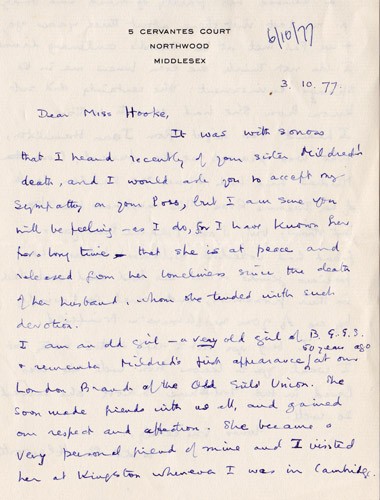 5 CERVANTES COURT
NORTHWOOD
MIDDLESEX
6/10/77
3.10.77.
Dear Miss Hooke,
It was with sorrow
that I heard recently of your sister Mildred's
death, and I would ask you to accept my
sympathy on your loss, but I am sure you
will be feeling - as I do, for I have known her
for a long time - that she is at peace and
released from her loneliness since the death
of her husband, whom she tended with such
devotion.
I am an old girl - a very old girl of B.G.G.S.
& remember Mildred's first appearance, 50 years ago at our
London Branch of the Old Girls Union. She
soon made friends with us all, and gained
our respect and affection. She became a
very personal friend of mine and I visited
her at Kingston whenever I was in Cambridge.